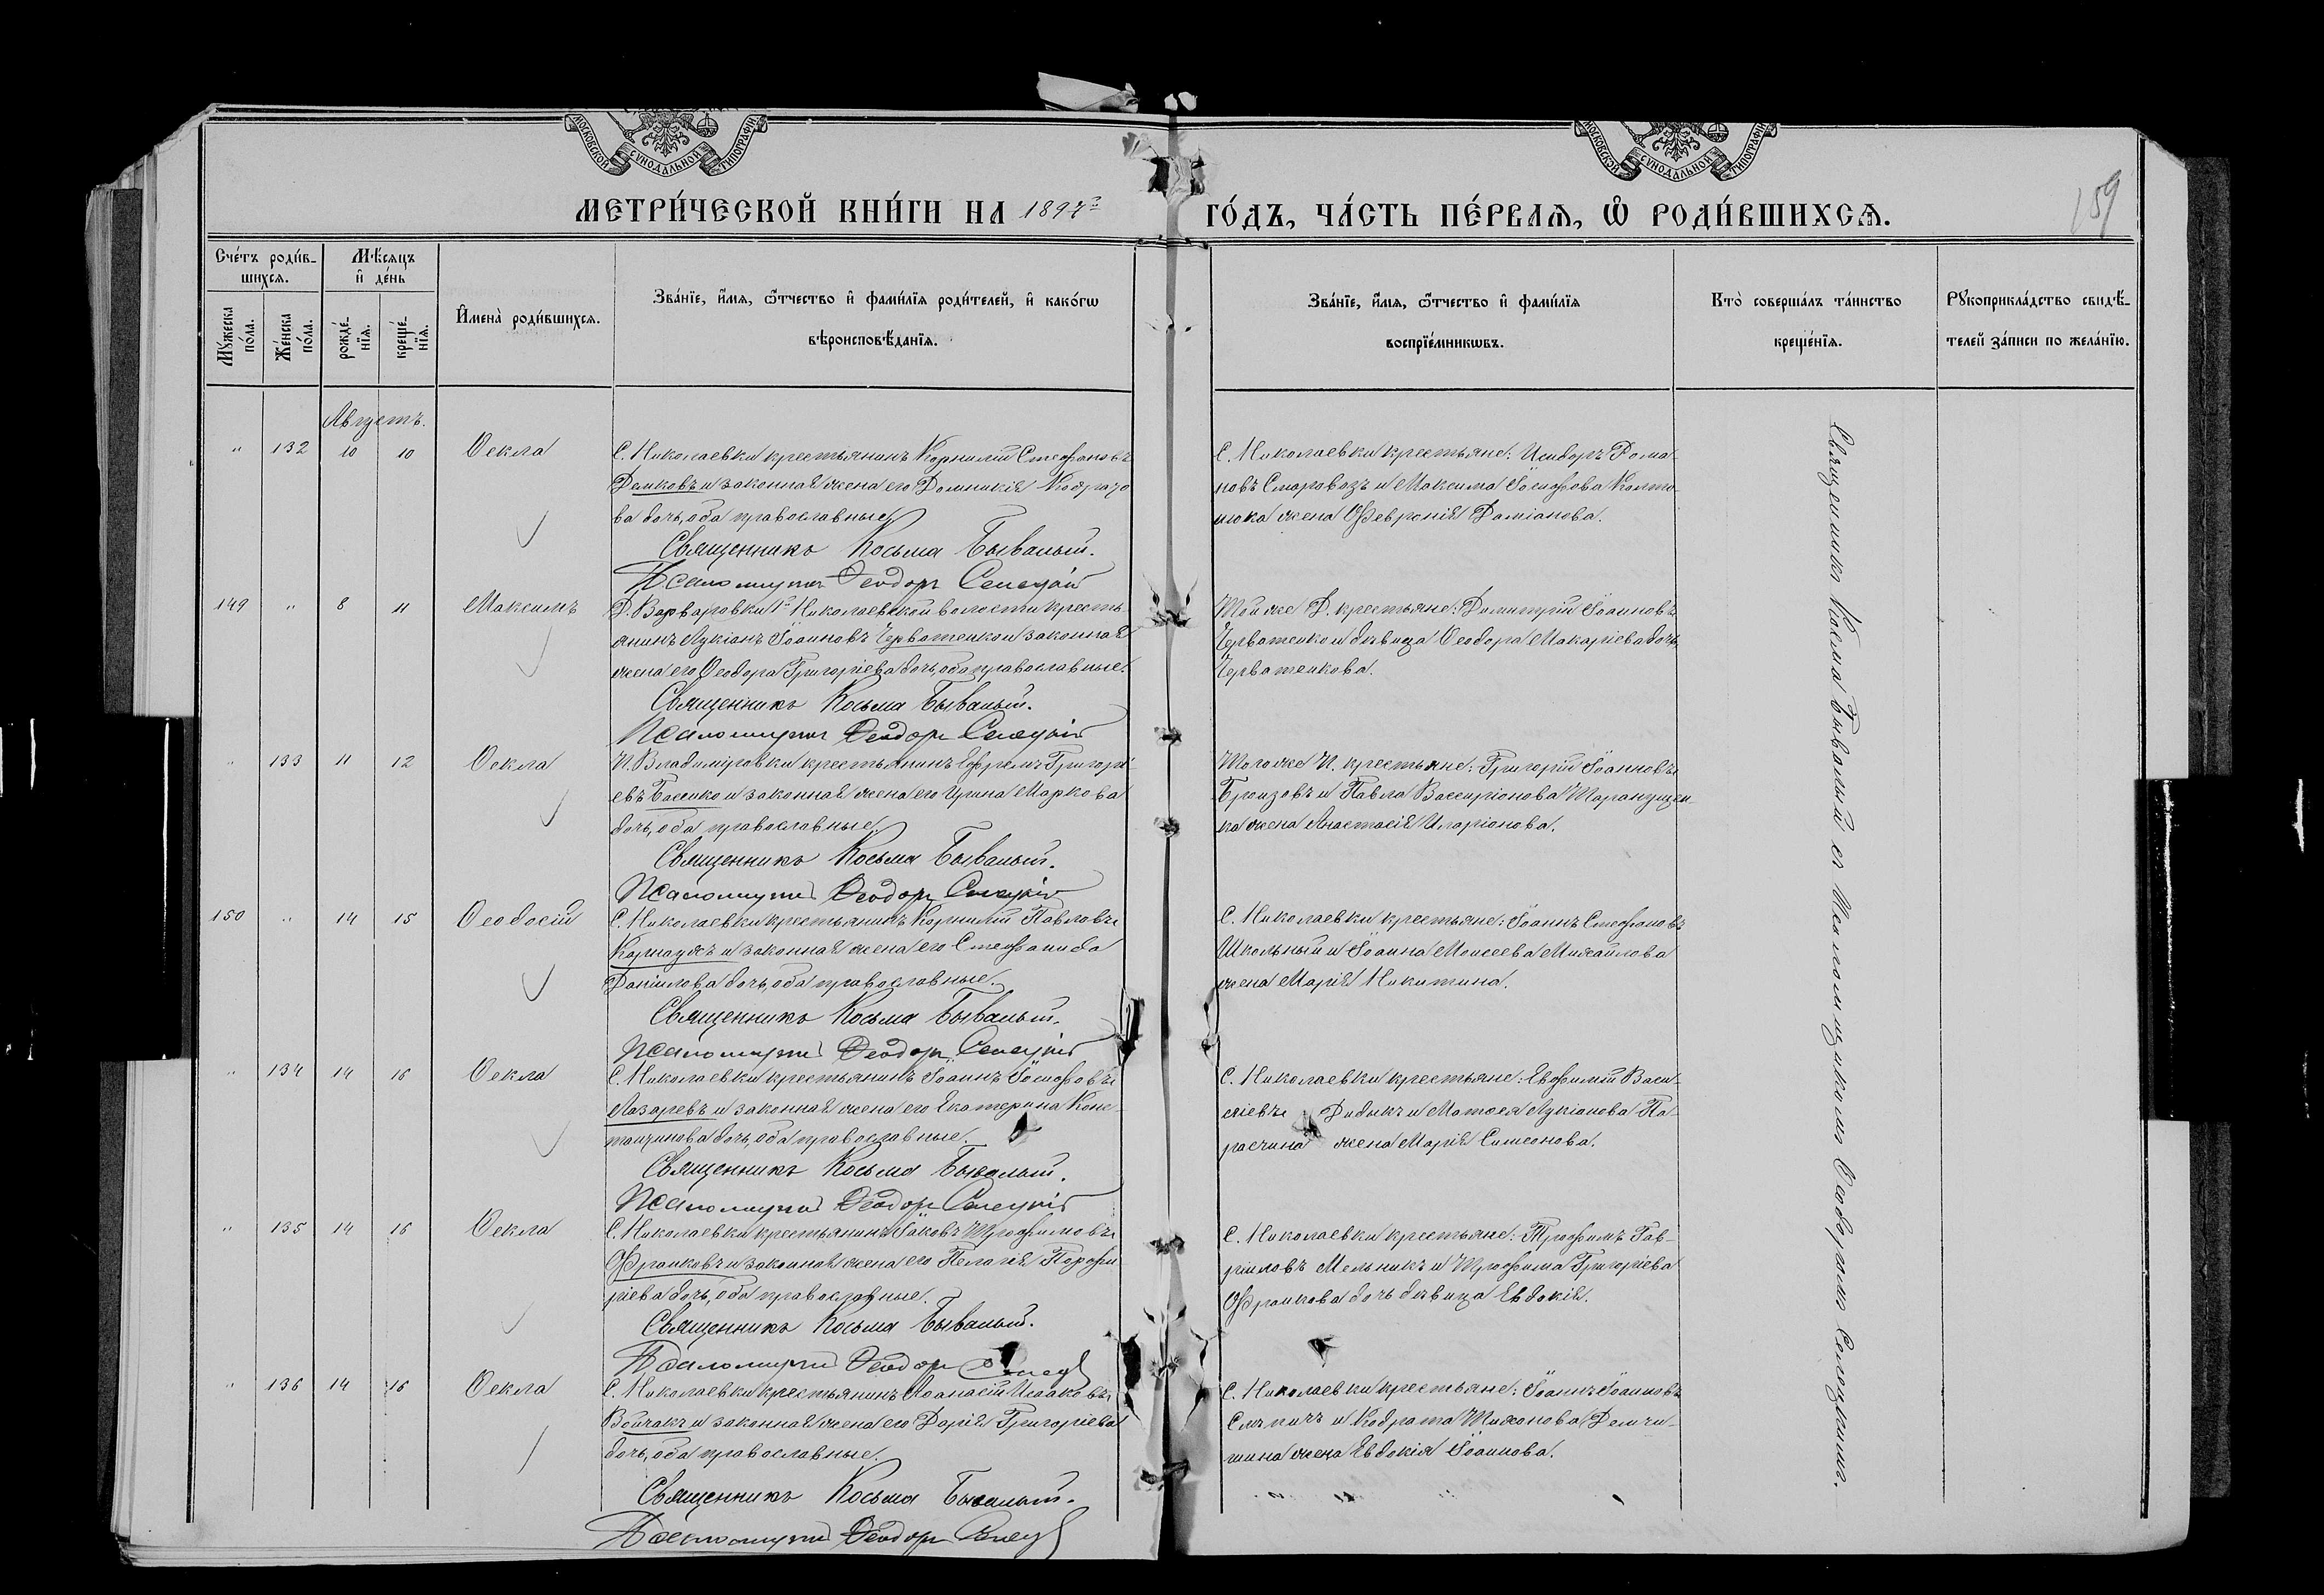 МОСКОВСКОЙ СѴНОДАЛЬНОЙ ТИПОГРАФІИ
МОСКОВСКОЙ СѴНОДАЛЬНОЙ ТИПОГРАФІИ
МЕТРИ́ЧЕСКОЙ КНИ́ГИ НА 1894 г. ГО́ДЪ, ЧА́СТЬ ПЕ́РВАѦ, Ѡ҆ РОДИ́ВШИХСѦ.
159
Сче́тъ роди́в-
шихсѧ.
Мѣ́сѧцъ
и҆ де́нь
Мꙋ́жеска по́ла.
Же́нска по́ла.
рожде́-
нїѧ.
креще́-
нїѧ.
И҆мена̀ роди́вшихсѧ.
Зва́нїе, и҆́мѧ, ѻ҆́тчество и҆ фами́лїѧ роди́телей, и҆ како́гѡ
вѣроисповѣ́данїѧ.
Зва́нїе, и҆́мѧ, ѻ҆́тчество и҆ фами́лїѧ
воспрїе́мникѡвъ.
Кто̀ соверша́лъ та́инство
креще́нїѧ.
Рꙋкоприкла́дство свидѣ́-
телей за́писи по жела́нїю.
Августъ.
" 132 10 10 Ѳекла
С. Николаевки крестьянинъ Корнилій Стефановъ
Демковъ и законная жена его Домникія Кодрато
ва дочь, оба православные.
Священникъ Косьма Бывалый.
Псаломщикъ Ѳеодоръ Селецкій
С. Николаевки крестьяне: Исидоръ Рома-
новъ Старовозъ и Максима Іосифова Колто-
нюка жена Февронія Даміанова.
149 " 8 11 Максимъ
Д. Варваровки 1й Николаевской волости кресть-
янинъ Лукіанъ Іоанновъ Черватенко и законная
жена его Ѳеодора Григоріева дочь, оба православные.
Священникъ Косьма Бывалый.
Псаломщикъ Ѳеодоръ Селецкій
Той же Д. крестьяне: Димитрій Іоанновъ
Черватенко и дѣвица Ѳеодора Макаріева дочь
Черватенкова.
" 133 11 12 Ѳекла
П. Владиміровки крестьянинъ Ефремъ Григорі
евъ Басенко и законная жена его Ирина Маркова
дочь, оба православные.
Священникъ Косьма Бывалый.
Псаломщикъ Ѳеодоръ Селецкій
Того же П. крестьяне: Григорій Іоанновъ
Бронзовъ и Павла Виссаріонова Тарануцен-
ка жена Анастасія Иларіонова.
150 " 14 15 Ѳеодосій
С. Николаевки крестьянинъ Корнилій Павловъ
Карнаухъ и законная жена его Стефанида
Даніилова дочь, оба православные.
Священникъ Косьма Бывалый.
Псаломщикъ Ѳеодоръ Селецкій
С. Николаевки крестьяне: Іоаннъ Стефановъ
Школьный и Іоанна Моисеева Михайлова
жена Марія Никитина.
" 134 14 16 Ѳекла
С. Николаевки крестьянинъ Іоаннъ Іосифовъ
Лазаревъ и законная жена его Екатерина Конс-
тантинова дочь, оба православные.
Священникъ Косьма Бывалый.
Псаломщикъ Ѳеодоръ Селецкій
С. Николаевки крестьяне: Евфимій Васи-
ліевъ Дидыкъ и Матѳея Лукіанова Па-
расчина жена Марія Симеонова.
" 135 14 16 Ѳекла
С. Николаевки крестьянинъ Іаковъ Трофимовъ
Франковъ и законная жена его Пелагія Порфи
ріева дочь, оба православные.
Священникъ Косьма Бывалый.
Псаломщикъ Ѳеодоръ Селецкій
С. Николаевки крестьяне: Трофимъ Гав-
ріиловъ Мельникъ и Трофима Григоріева
Франкова дочь дѣвица Евдокія.
" 136 14 16 Ѳекла
С. Николаевки крестьянинъ Аѳанасій Исааковъ
Войчакъ и законная жена его Дарія Григоріева
дочь, оба православные.
Священникъ Косьма Бывалый.
Псаломщикъ Ѳеодоръ Селецкій
С. Николаевки крестьяне: Іоаннъ Іоанновъ
и Кодрата Тихонова
жена Евдокія Іоаннова.
Священникъ Косьма Бывалый съ Псаломщикомъ Ѳеодоромъ Селецкимъ.